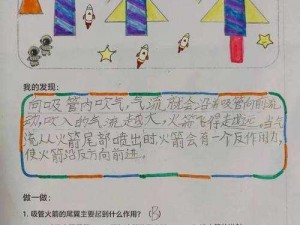 我的发现:
向吸管内吹气,气流就会沿着吸管向前流
动,吹入的气流越大,火箭飞得走越远。当气
流从从火箭尾部喷出时,火箭会有一个反作用力,
使火箭沿反方向前进。
做一做:
1. 吸管火箭的尾翼主要起到什么作用? (B)